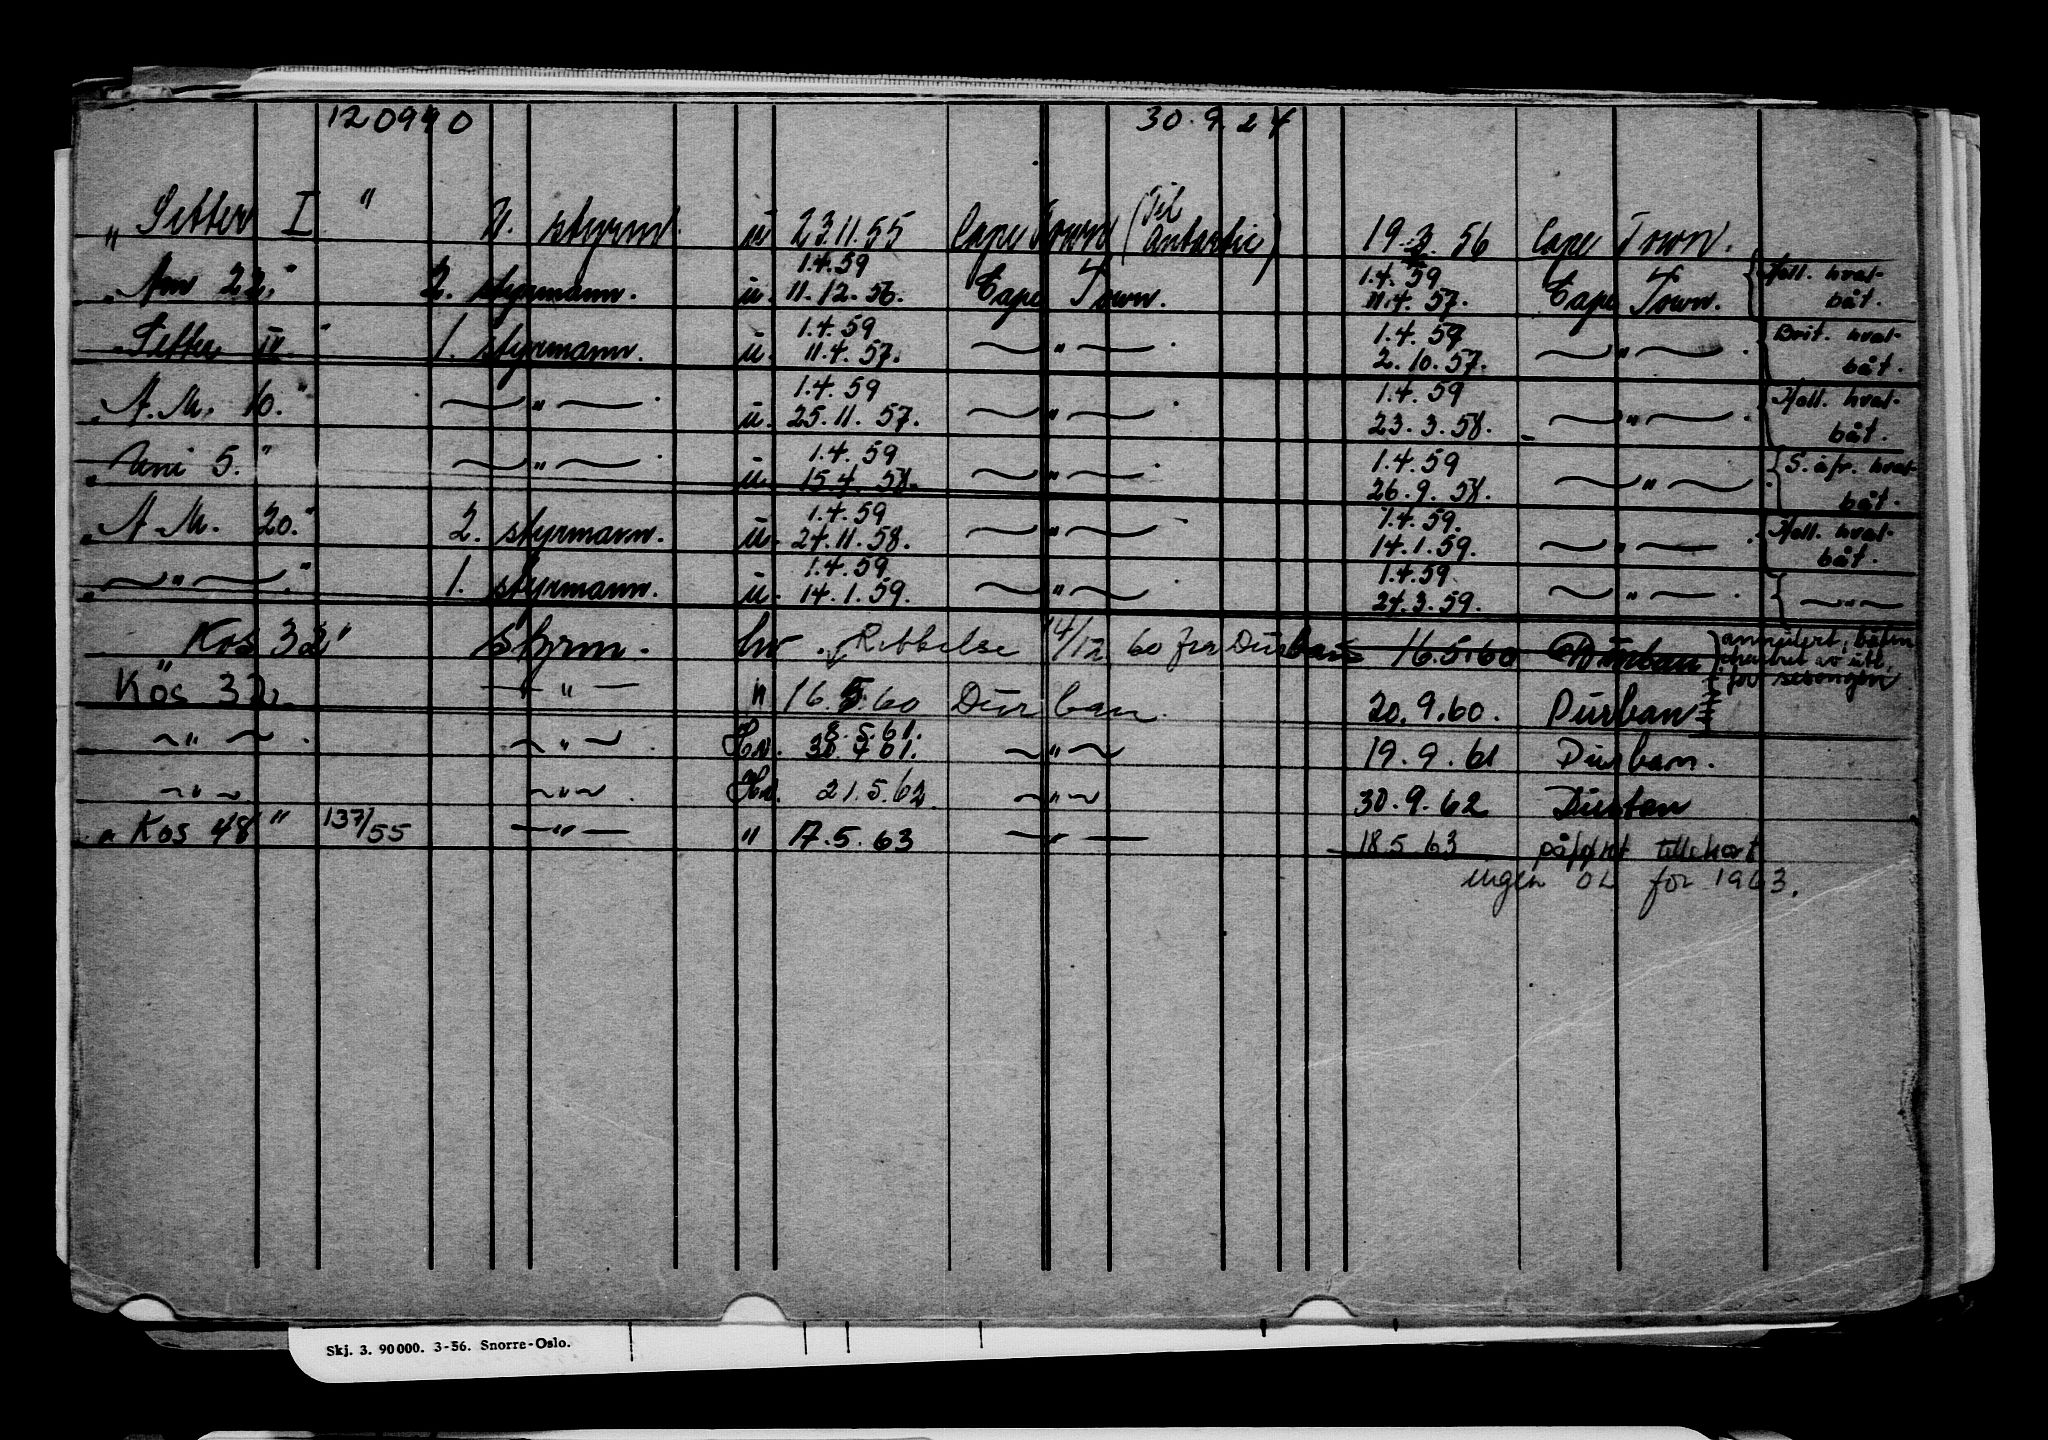 120940 30.9.24
" Setter I " 2. styrm. u 23.11.55 Cape Town (Til Antarctic) 19.3.56 Cape Town.
1.4.59 1.4.59 { Holl. hval-
" Am 22." 2. styrmann. u. 11.12.56. Cape Town. 11.4.57. Cape Town. båt.
1.4.59 1.4.59 { Brit. hval-
" Setter IV." 1. styrmann. u. 11.4.57. — " — . 2.10.57. — " — . båt.
1.4.59 1.4.59 { Holl. hval-
" A.M. 10." — " — . u. 25.11.57. — " — . 23.3.58. — " — . båt.
1.4.59 1.4.59 { S. afr. hval-
" Uni 5." — " — . u. 15.4.58. — " — . 26.9.58. — " — . båt.
1.4.59 1.4.59. { Holl. hval-
" A.M. 20." 2. styrmann. u. 24.11.58. — " — . 14.1.59. — " — . båt.
1.4.59 1.4.59
" — " — ." 1. styrmann. u. 14.1.59. — " — . 24.3.59. — " — . { — " —
" Kos 32" styrm. hv. Rettelse 14/12 60 fra Durban 16.5.60 Durban } annulert, båten
chartret av utl.
for sesongen
Kos 32. — " — " 16.5.60 Durban. 20.9.60. Durban
8.5.61.
~ " ~ . ~ " ~ . Hv. 30.7.61. ~ " ~ 19.9.61 Durban.
~ " ~ ~ " ~ . Hv. 21.5.62 ~ " ~ 30.9.62 Durban
" Kos 48 " 137/55 — " — " 17.5.63 — " — 18.5.63 påført tellekort
ingen OL for 1963.
Skj. 3. 90000. 3-56. Snorre-Oslo.